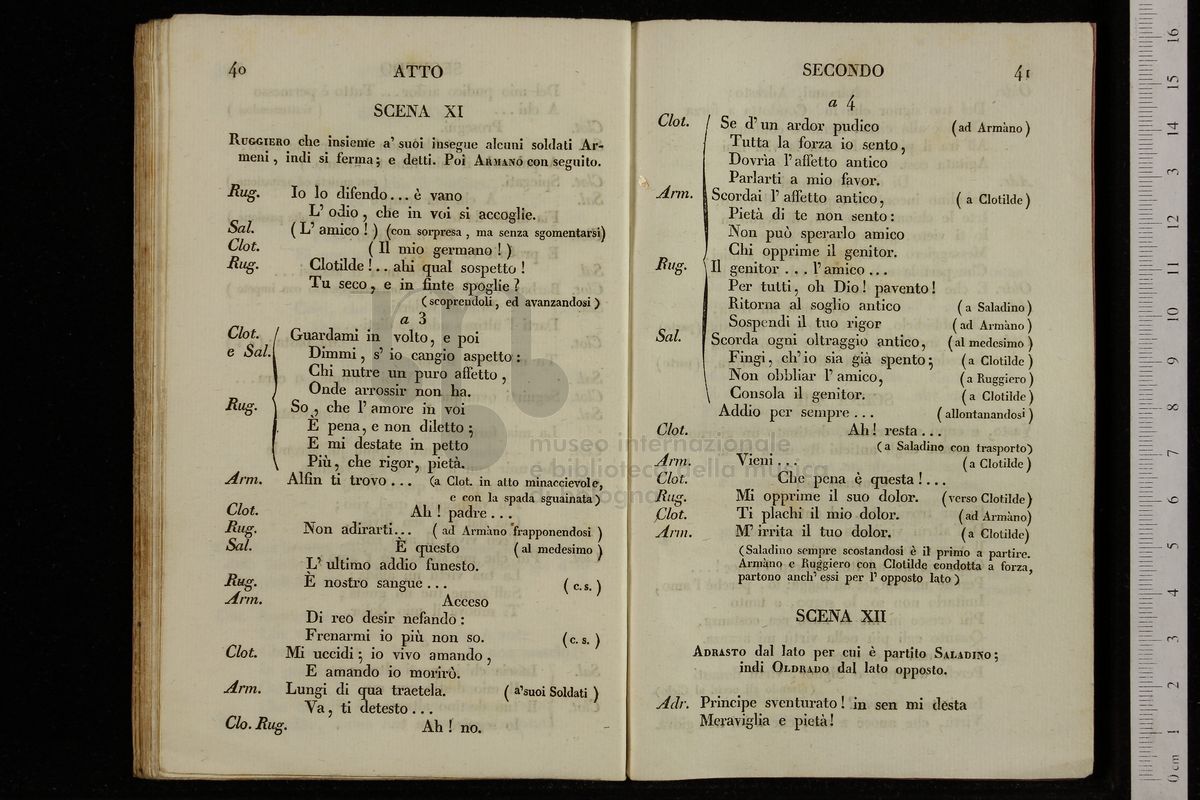 40
ATTO
SCENA XI
RUGGIERO che insieme a' suoi insegue alcuni soldati Ar-
meni, indi si ferma; e detti. Poi ARMANO con seguito.
Rug. Io lo difendo... è vano
L' odio, che in voi si accoglie.
Sal. (L' amico!) (con sorpresa, ma senza sgomentarsi)
Clot. (Il mio germano!)
Rug. Clotilde!.. ahi qual sospetto!
Tu seco, e in finte spoglie?
(scoprendoli, ed avanzandosi)
a 3
Clot. Guardami in volto, e poi
e Sal. Dimmi, s' io cangio aspetto:
Chi nutre un puro affetto,
Onde arrossir non ha.
Rug. So, che l' amore in voi
È pena, e non diletto;
E mi destate in petto
Più, che rigor, pietà.
Arm. Alfin ti trovo... (a Clot. in atto minaccievole,
e con la spada sguainata)
Clot. Ah! padre...
Rug. Non adirarti... (ad Armàno frapponendosi)
Sal. È questo (al medesimo)
L' ultimo addio funesto.
Rug. È nostro sangue... (c. s.)
Arm. Acceso
Di reo desir nefando:
Frenarmi io più non so. (c. s.)
Clot. Mi uccidi; io vivo amando,
E amando io morirò.
Arm. Lungi di qua traetela. (a'suoi Soldati)
Va, ti detesto...
Clo. Rug. Ah! no.
SECONDO
41
a 4
Clot. Se d' un ardor pudico (ad Armàno)
Tutta la forza io sento,
Dovrìa l' affetto antico
Parlarti a mio favor.
Arm. Scordai l' affetto antico, (a Clotilde)
Pietà di te non sento:
Non può sperarlo amico
Chi opprime il genitor.
Rug. Il genitor... l' amico...
Per tutti, oh Dio! pavento!
Ritorna al soglio antico (a Saladino)
Sospendi il tuo rigor (ad Armàno)
Sal. Scorda ogni oltraggio antico, (al medesimo)
Fingi, ch' io sia già spento; (a Clotilde)
Non obbliar l' amico, (a Ruggiero)
Consola il genitor. (a Clotilde)
Addio per sempre... (allontanandosi)
Clot. Ah! resta...
(a Saladino con trasporto)
Arm. Vieni... (a Clotilde)
Clot. Che pena è questa!...
Rug. Mi opprime il suo dolor. (verso Clotilde)
Clot. Ti plachi il mio dolor. (ad Armàno)
Arm. M' irrita il tuo dolor. (a Clotilde)
(Saladino sempre scostandosi è il primo a partire.
Armàno e Ruggiero con Clotilde condotta a forza,
partono anch' essi per l' opposto lato)
SCENA XII
ADRASTO dal lato per cui è partito SALADINO;
indi OLDRADO dal lato opposto.
Adr. Principe sventurato! in sen mi desta
Meraviglia e pietà!
museo internazionale
e biblioteca della musica